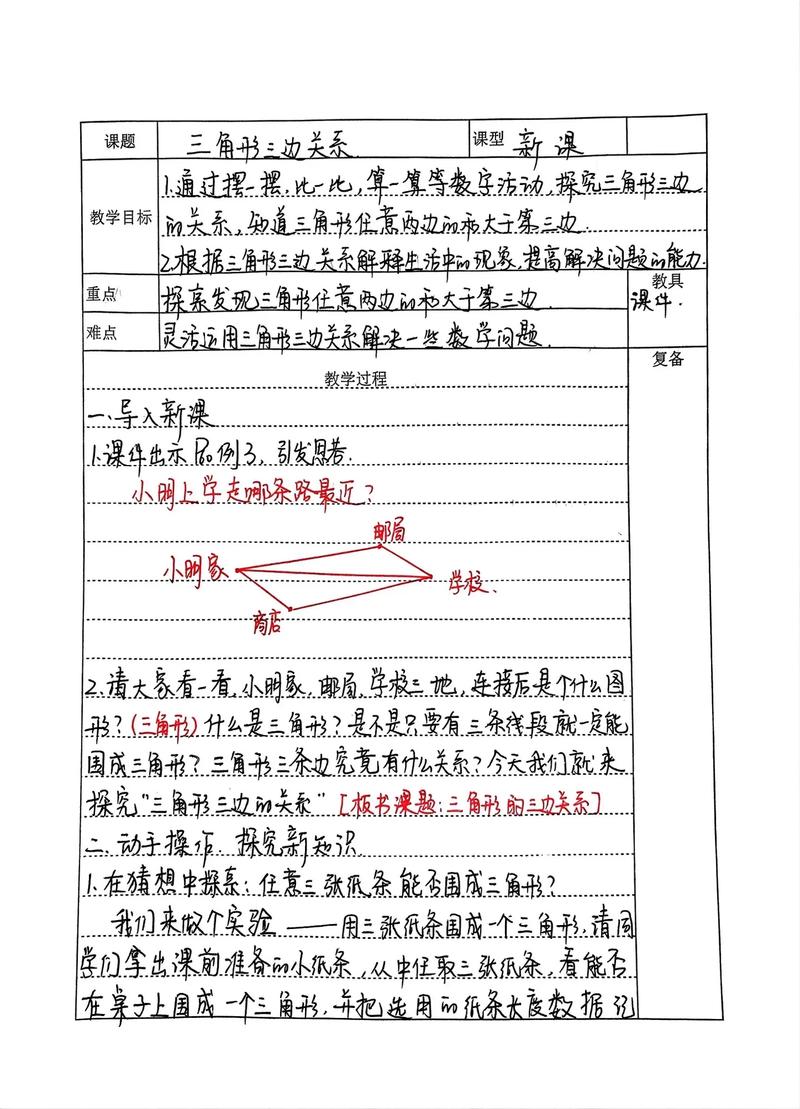 课题 三角形三边关系. 课型 新课
教学目标
1.通过摆一摆,比一比,算一算等数字活动,探究三角形三边
的关系,知道三角形任意两边的和大于第三边.
2.根据三角形三边关系解释生活中的现象,提高解决问题的能力.
重点 探索发现三角形任意两边的和大于第三边. 教具
课件.
难点 灵活运用三角形三边关系解决一些数学问题.
教学过程 复备
一.导入新课
1.课件出示 例3,引发思考.
小明上学走哪条路最近?
邮局
小明家
学校.
商店
2.请大家看一看,小明家,邮局,学校三地,连接后是个什么图
形?(三角形)什么是三角形?是不是只要有三条线段就一定能
围成三角形?三角形三条边究竟有什么关系?今天我们就来
探究“三角形三边的关系”[板书课题:三角形的三边关系]
二.动手操作.探究新知识.
1.在猜想中探索:任意三张纸条能否围成三角形?
我们来做个实验——用三张纸条围成一个三角形,请同
学们拿出课前准备的小纸条,从中任取三张纸条,看能否
在桌子上围成一个三角形,并把选用的纸条长度数据记